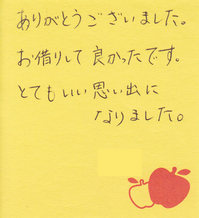 ありがとうございました。
お借りして良かったです。
とてもいい思い出に
なりました。